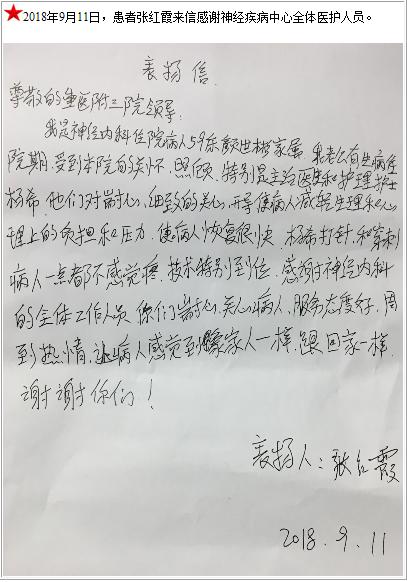 ★2018年9月11日，患者张红霞来信感谢神经疾病中心全体医护人员。
表扬信
尊敬的重医附二院领导:
我是神经内科住院病人59床 家属 我老公有生病住
院期.受到贵院的关怀.照顾.特别是主治医生和护理护士
杨希.他们对耐心、细致的关心,开导使病人减轻生理和心
理上的负担和压力.使病人恢复很快.杨希打针,和穿刺
病人一点都不感觉疼.技术特别到位.感谢神经内科
的全体工作人员.你们耐心、关心病人、服务态度好.周
到热情,让病人感觉到像家人一样.跟回家一样.
谢谢你们！
表扬人:张红霞
2018.9.11